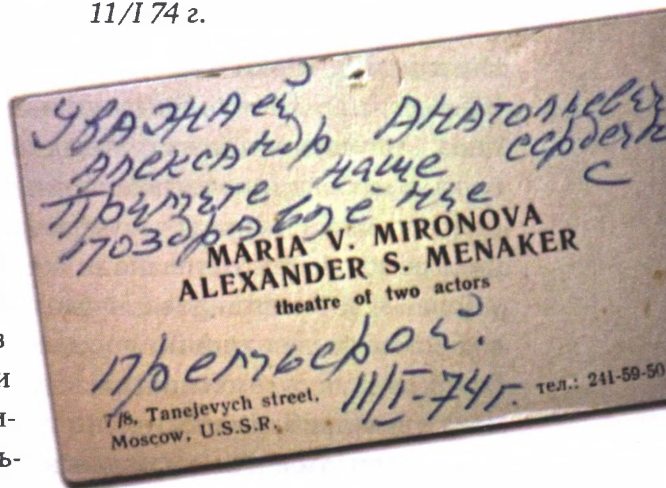 11/I 74 г.
Уважаей
Александр Анатольевич
Примите наше сердечн
поздравление с
MARIA V. MIRONOVA
ALEXANDER S. MENAKER
theatre of two actors
премьерой.
11/I-74г.
7/8, Tanejevych street,
Moscow, U.S.S.R.
тел.: 241-59-50
з
и
и-
ь-